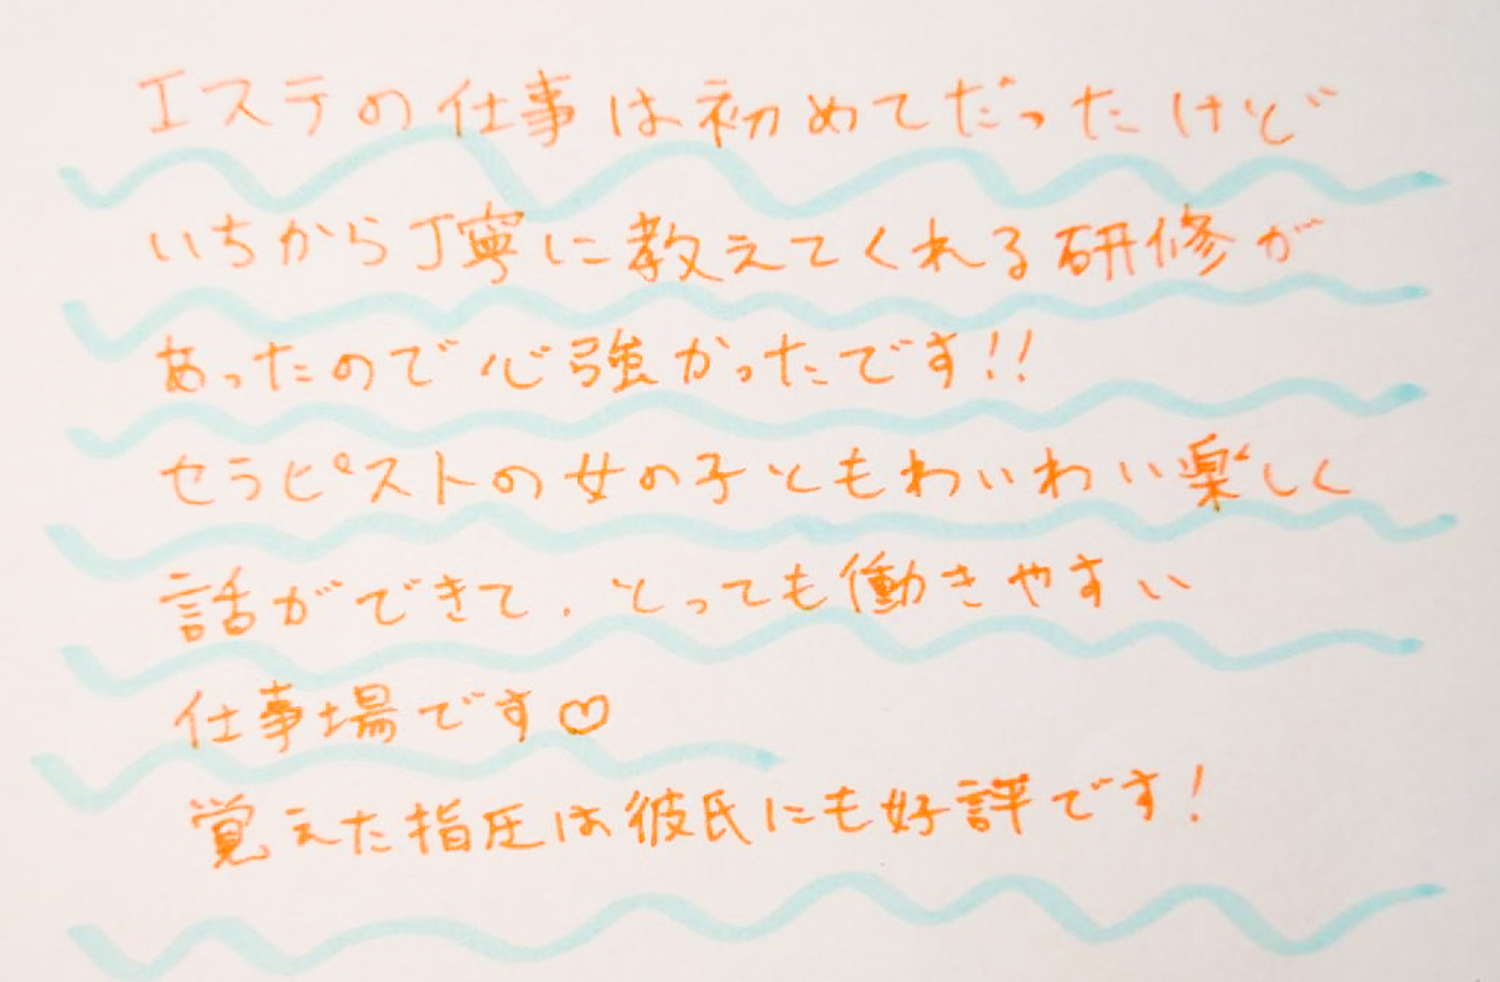 エステの仕事は初めてだったけど
いちから丁寧に教えてくれる研修が
あったので心強かったです!!
セラピストの女の子ともわいわい楽しく
話ができて、とっても働きやすい
仕事場です♡
覚えた指圧は彼氏にも好評です!